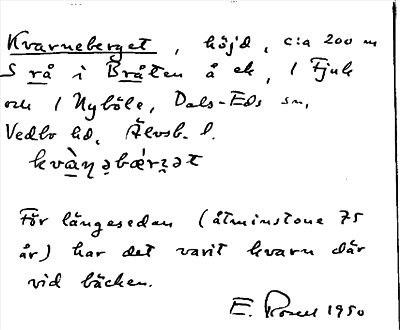 Kvarneberget, höjd, c:a 200 m
S rå i Bråten å ek, 1 Fjuk
och 1 Nyböle, Dals-Eds sn,
Vedbo hd, Älvsb. l.
För längesedan (åtminstone 75
år) har det varit kvarn där
vid bäcken.
E. Rosell 1950